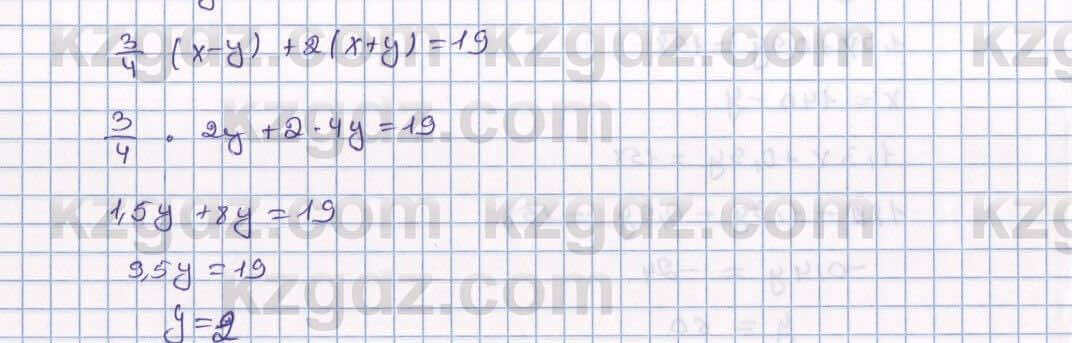 3/4 (x-y) + 2(x+y) = 19
kzgdz.com kzgdz.com kzg
3/4 · 2y + 2 · 4y = 19
kzgdz.com
1,5y + 8y = 19
kzgdz.com kzgdz.com kzg
9,5y = 19
kzgdz.com
y = 2